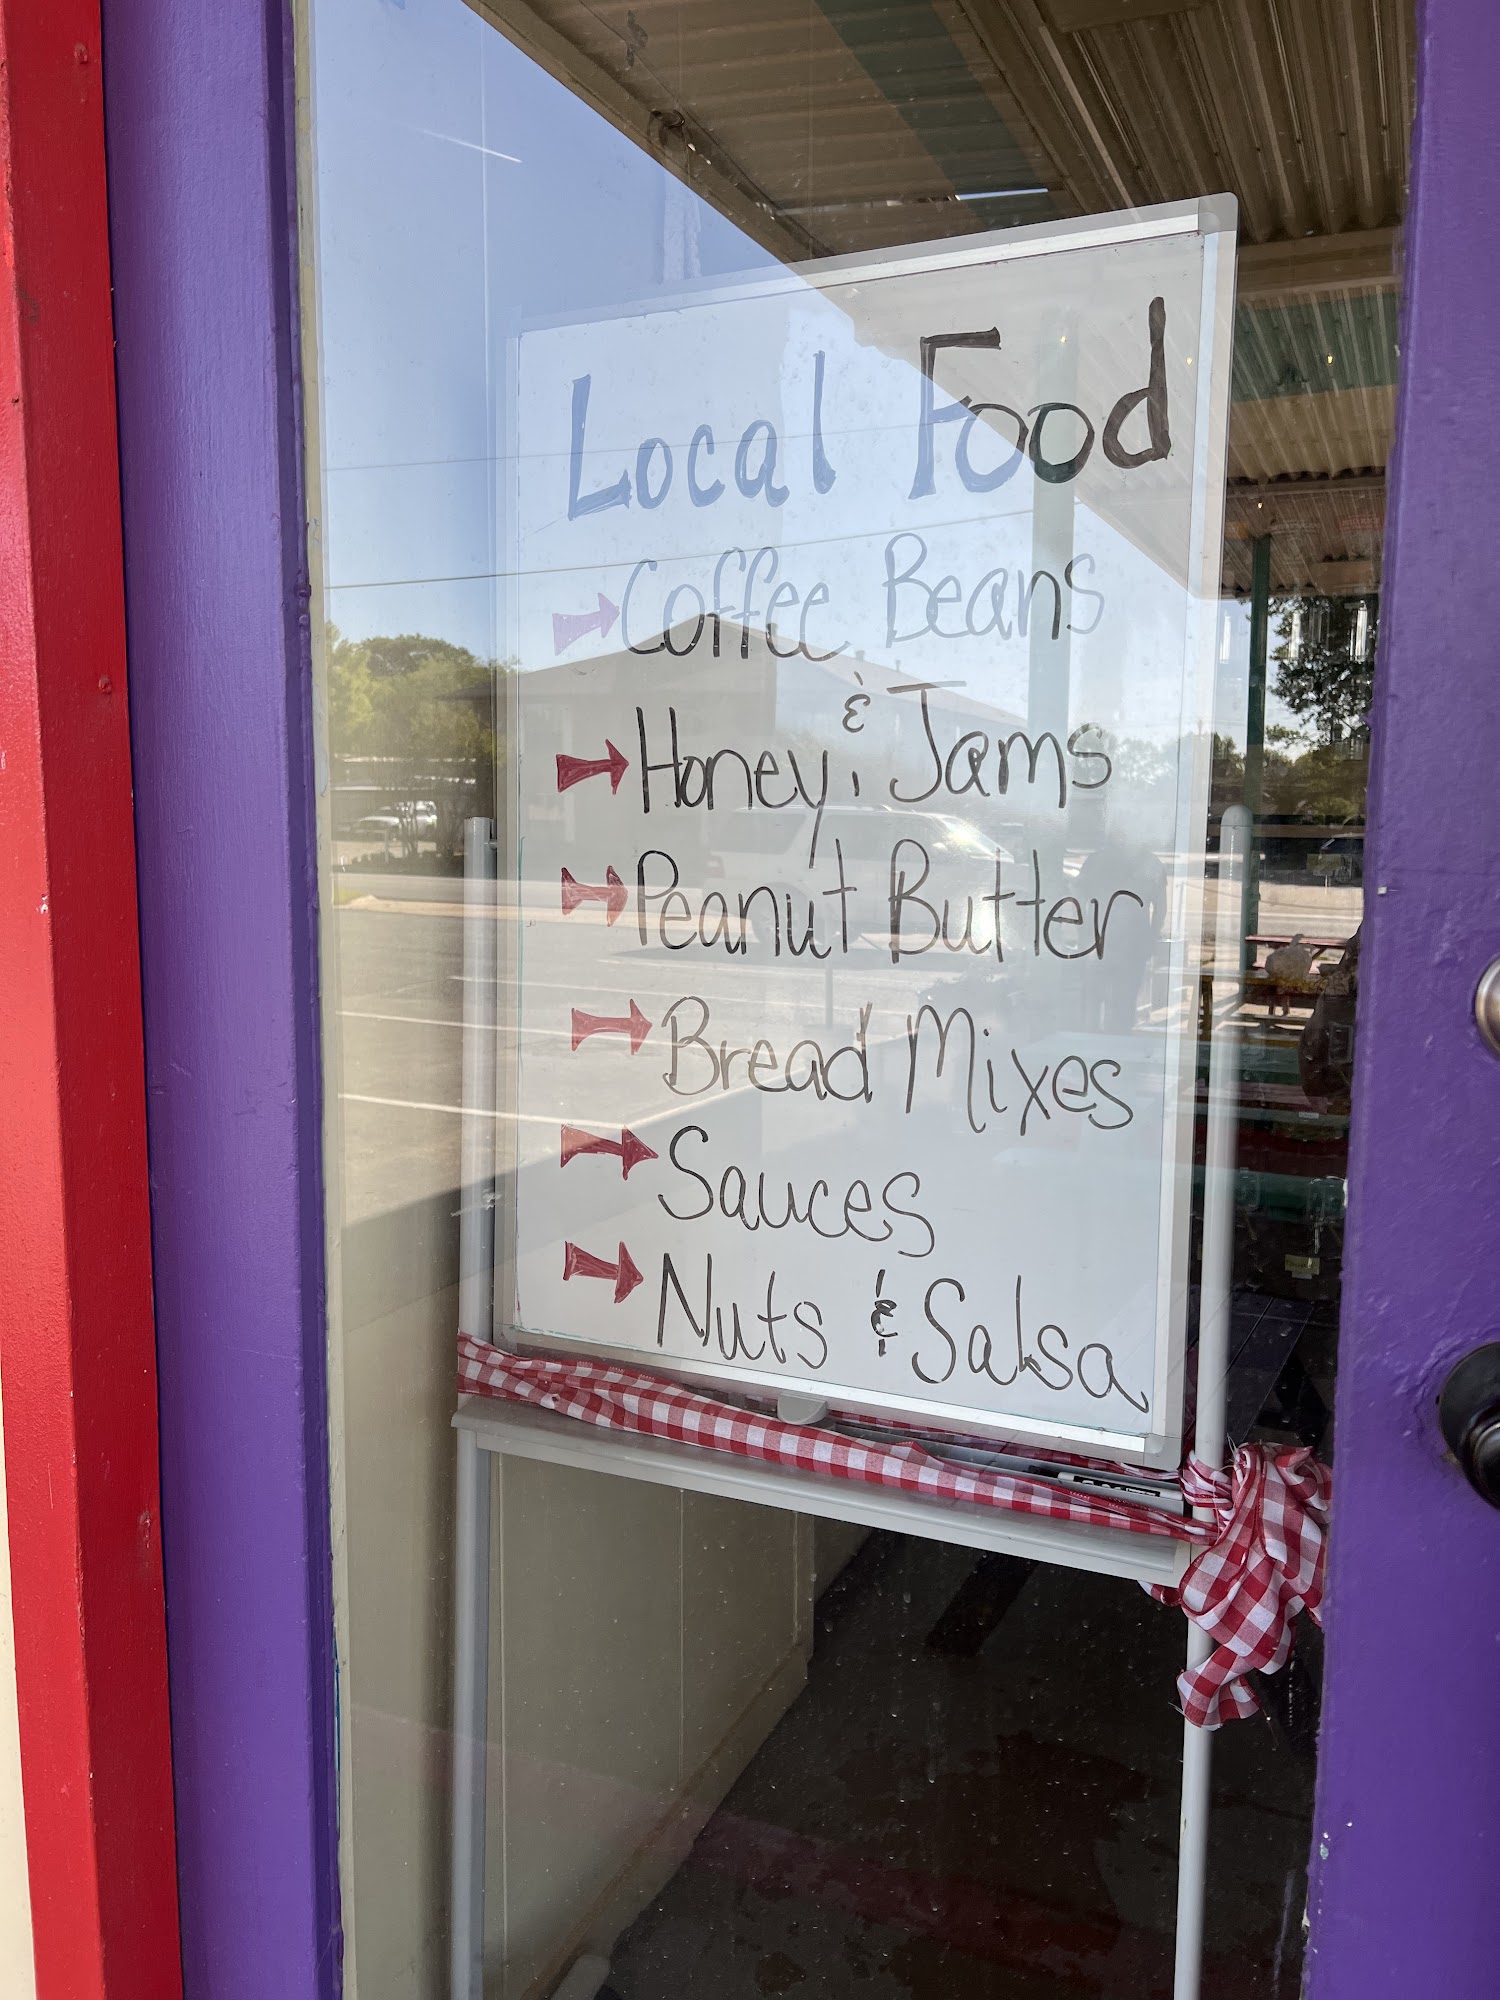 Local Food
Coffee Beans
Honey, & Jams
Peanut Butter
Bread Mixes
Sauces
Nuts & Salsa